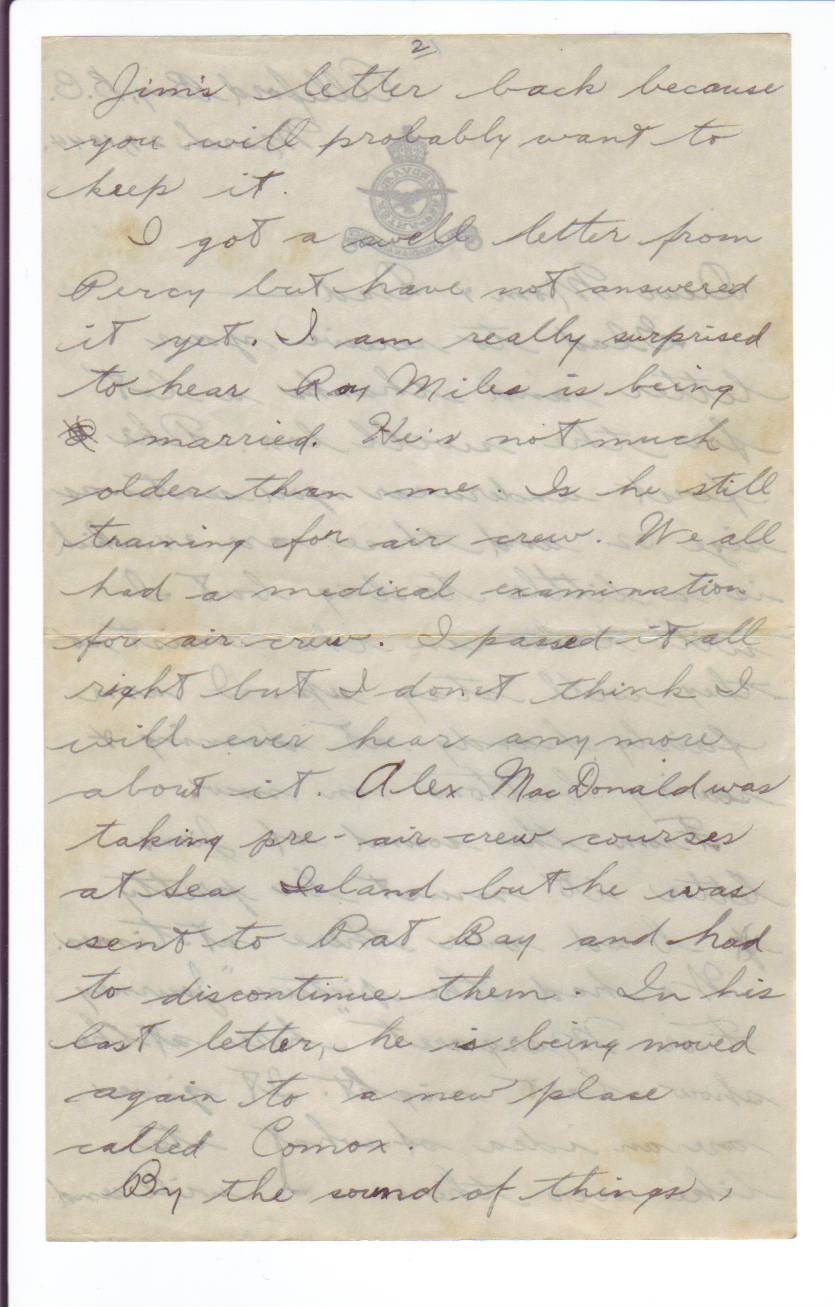 2
Jim's letter back because
you will probably want to
keep it.
I got a swell letter from
Percy but have not answered
it yet. I am really surprised
to hear Roy Miles is being
married. He's not much
older than me. Is he still
training for air crew. We all
had a medical examination
for air crew. I passed it all
right but I don't think I
will ever hear any more
about it. Alex MacDonald was
taking pre-air-crew courses
at Sea Island but he was
sent to Pat Bay and had
to discontinue them. In his
last letter, he is being moved
again to a new place
called Comox.
By the sound of things,